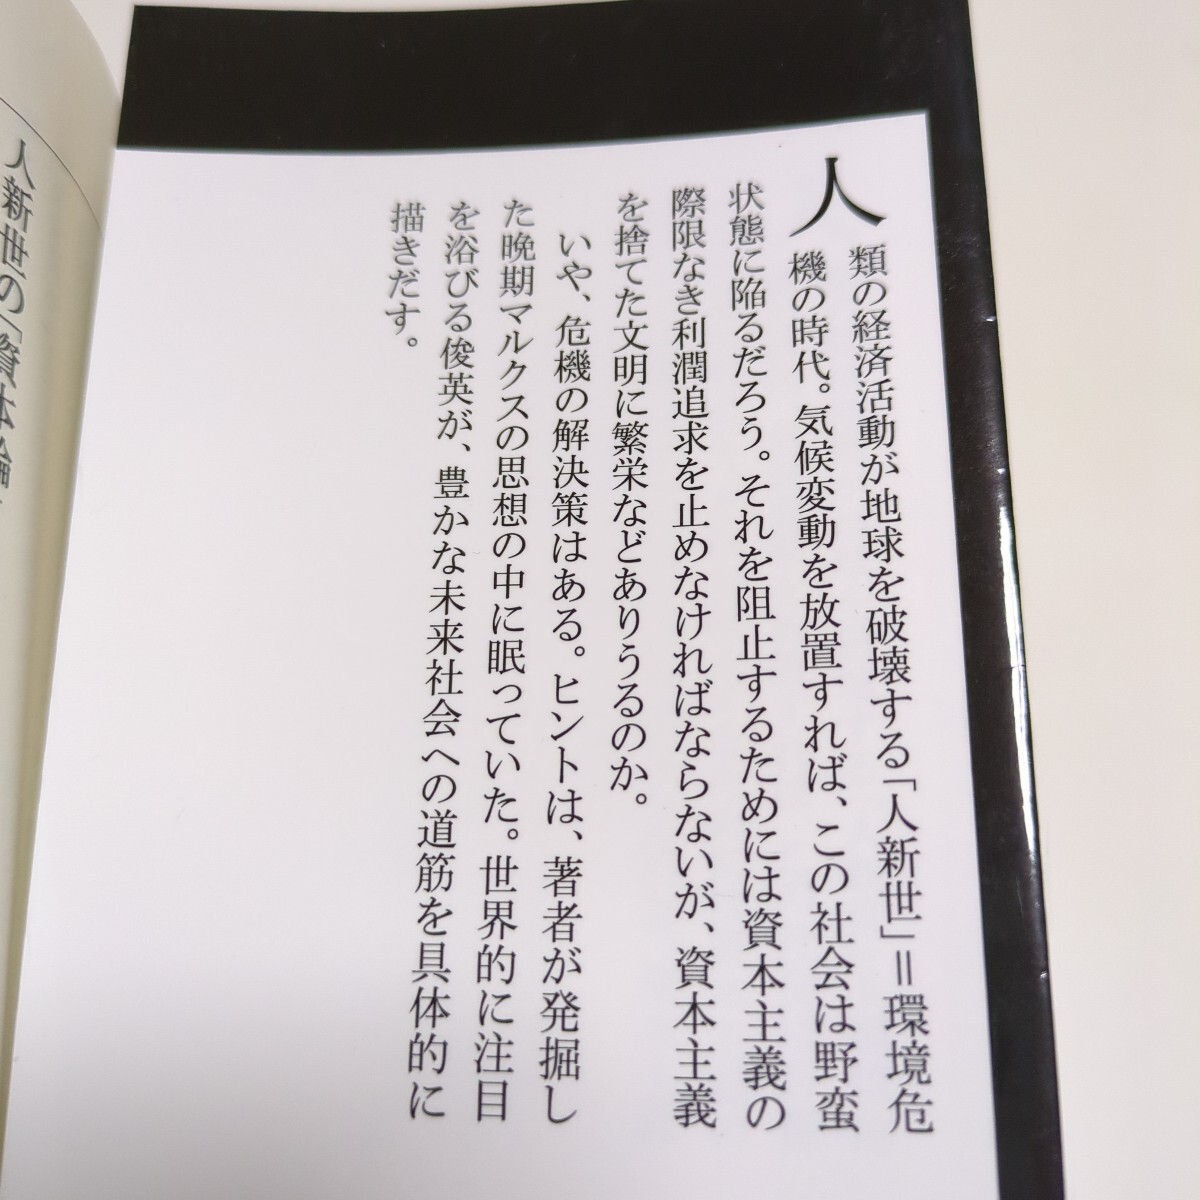 人類の経済活動が地球を破壊する「人新世」＝環境危
機の時代。気候変動を放置すれば、この社会は野蛮
状態に陥るだろう。それを阻止するためには資本主義の
際限なき利潤追求を止めなければならないが、資本主義
を捨てた文明に繁栄などありうるのか。
いや、危機の解決策はある。ヒントは、著者が発掘し
た晩期マルクスの思想の中に眠っていた。世界的に注目
を浴びる俊英が、豊かな未来社会への道筋を具体的に
描きだす。
人新世の「資本論」